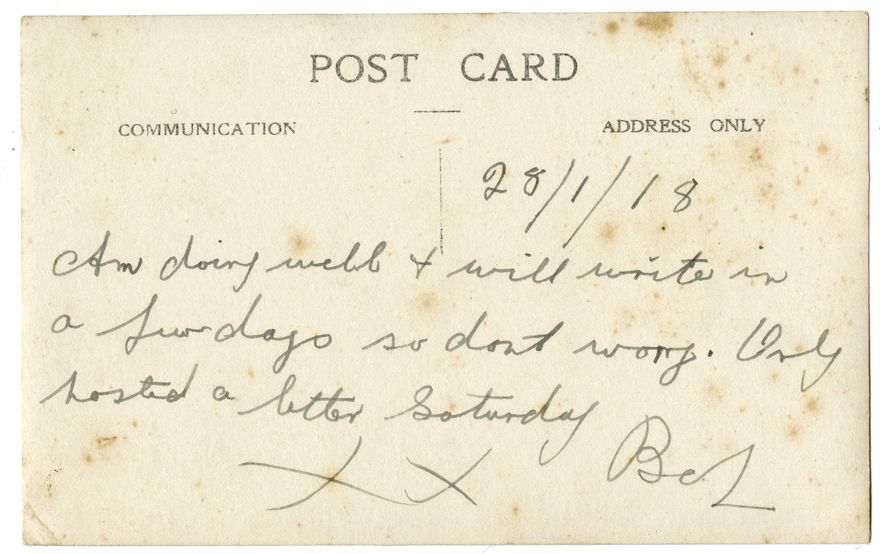 POST CARD
COMMUNICATION
ADDRESS ONLY
28/1/18
Am doing well & will write in
a few days so dont worry. Only
posted a letter Saturday
X X